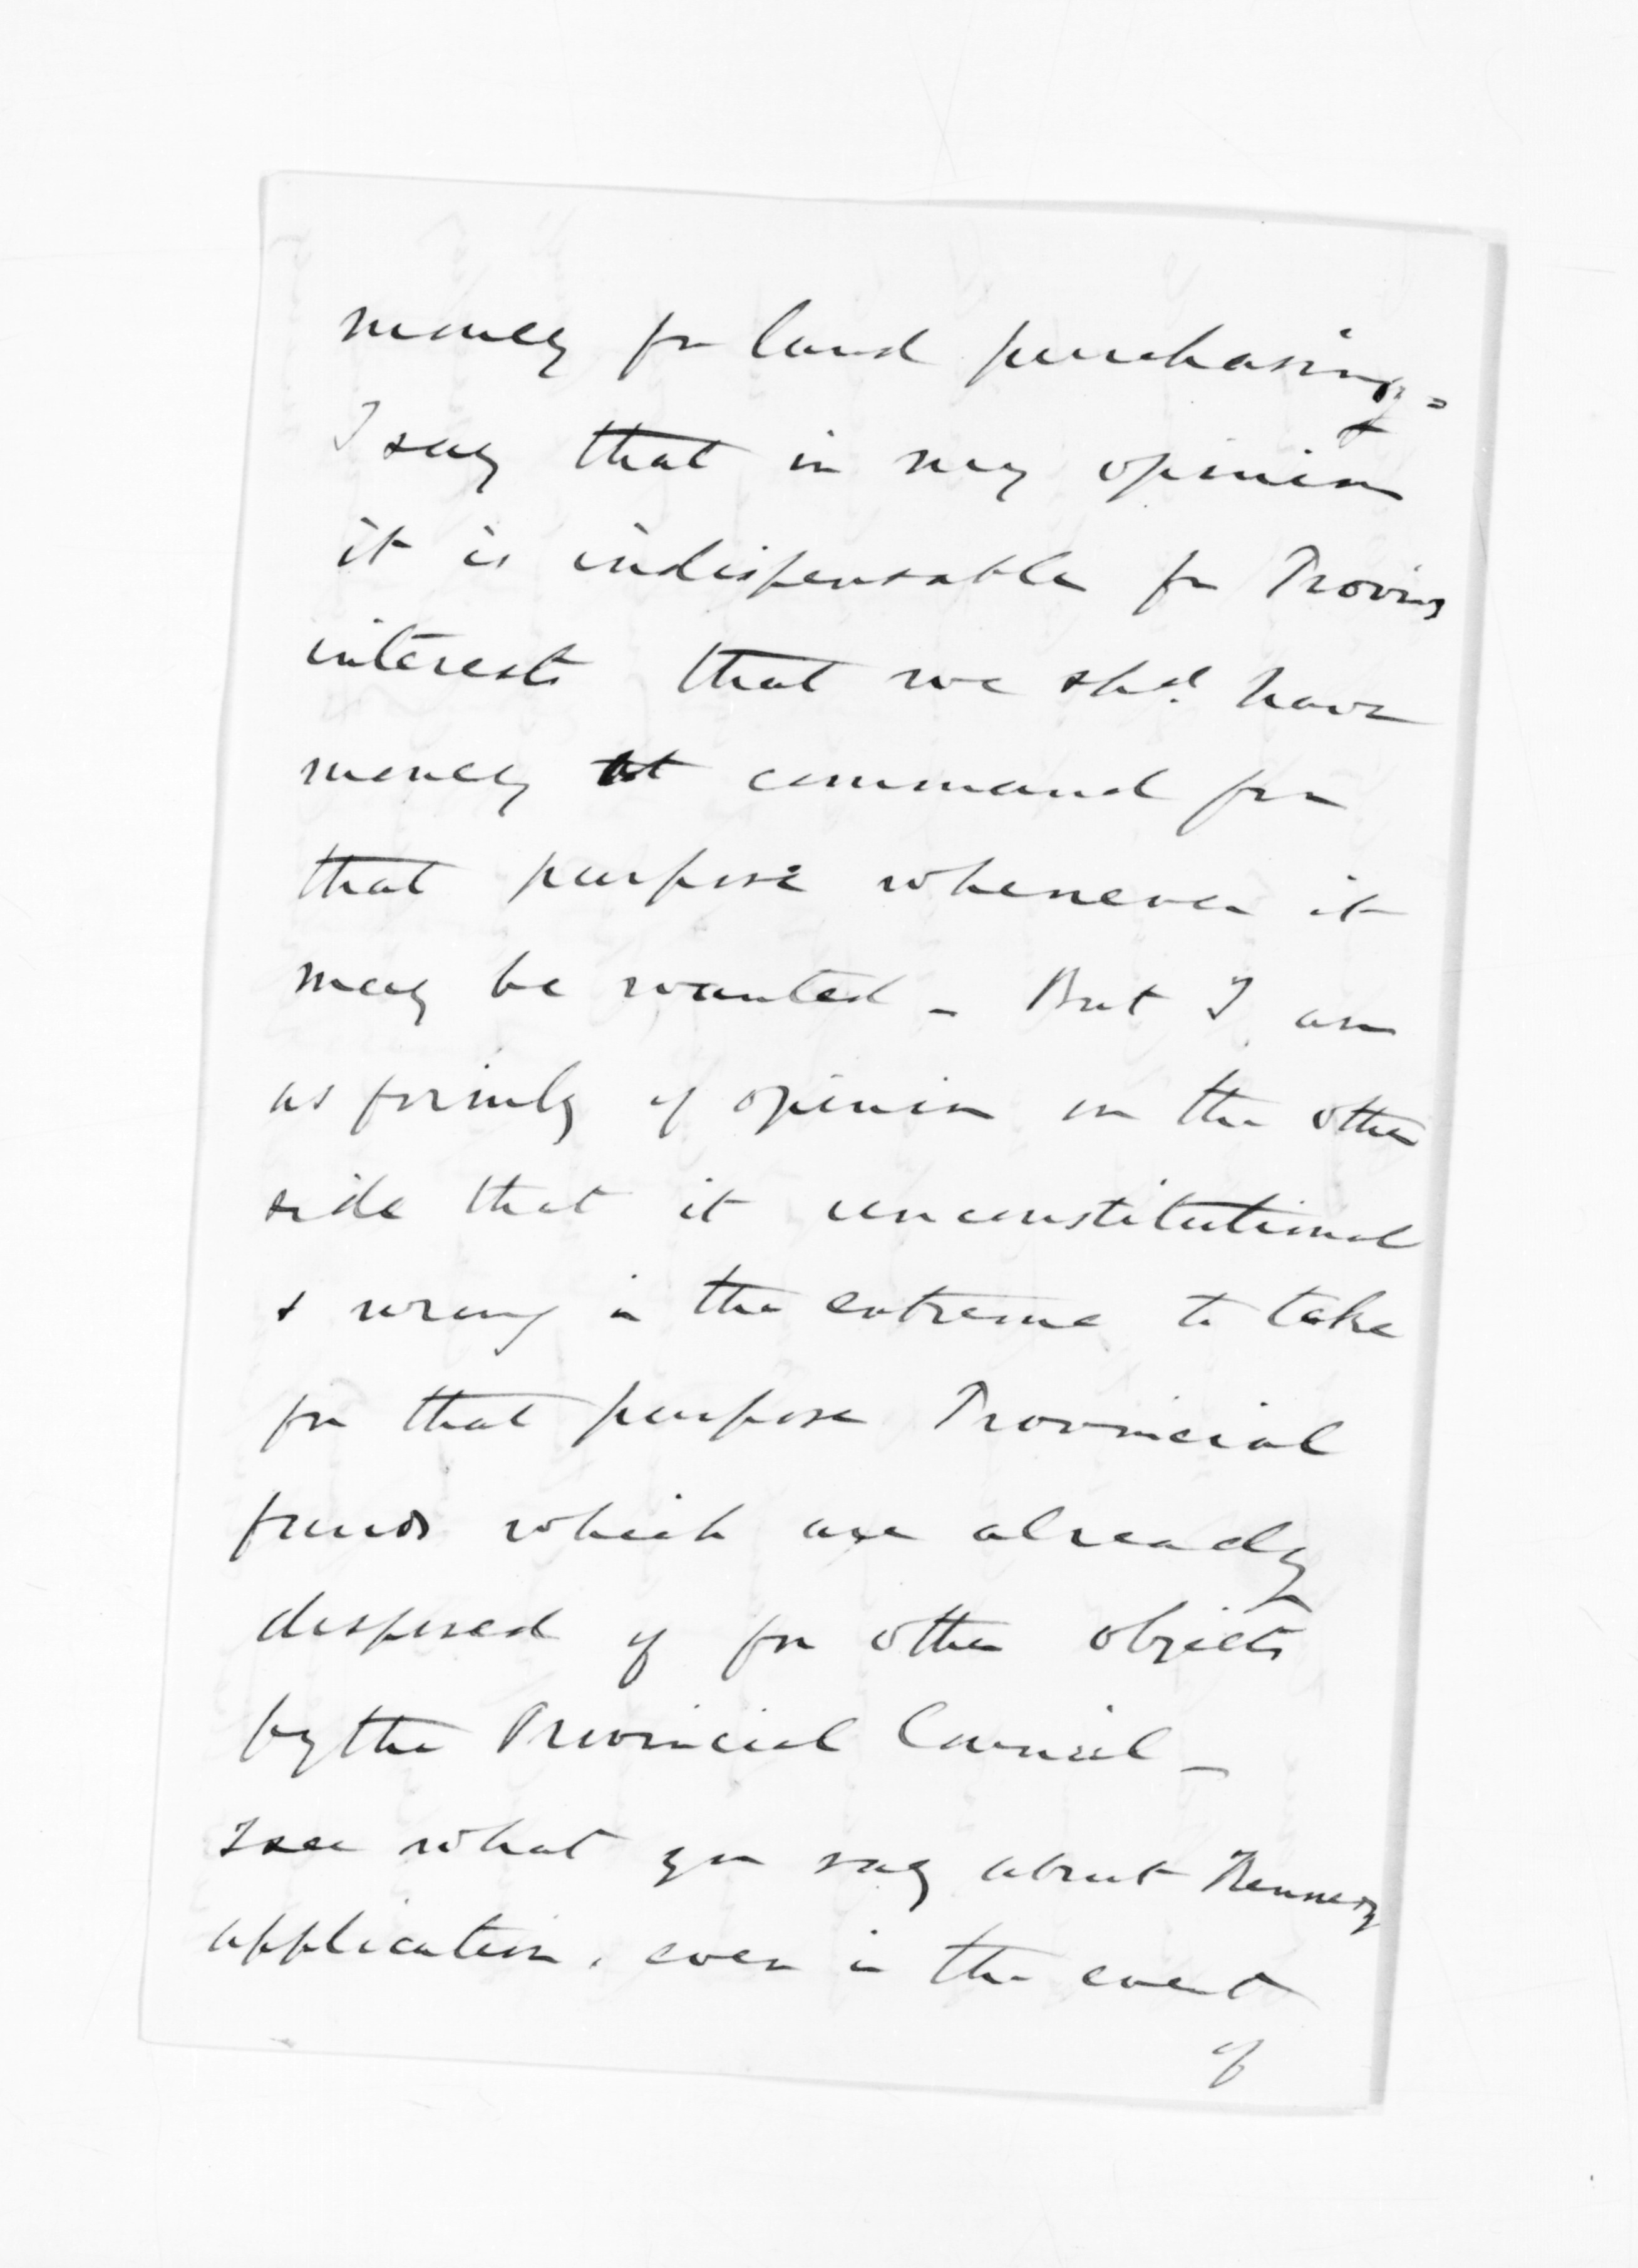 money for land purchasing =
I say that in my opinion
it is indispensable for
interests that we shd. have
money at command for
that purpose whenever it
may be wanted _ But I am
as firmly of opinion on the other
side that it unconstitutional
& wrong in the extreme to take
for that purpose Provincial
funds which are already
disposed of for other objects
by the Provincial Council _
I see what you say about
application, even in the event
of